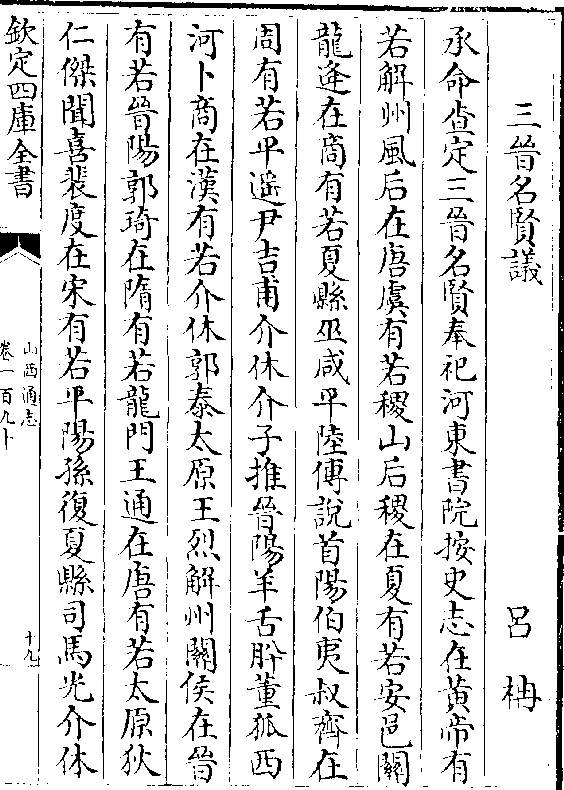 三晉名賢議
呂柟
承命查定三晉名賢奉祀河東書院按史志在黃帝有
若解州風后在唐虞有若稷山后稷在夏有若安邑關
龍逄在商有若夏縣巫咸平陸傅說首陽伯夷叔齊在
周有若平遥尹吉甫介休介子推晉陽羊舌肸董狐西
河卜商在漢有若介休郭泰太原王烈解州關侯在晉
有若晉陽郭琦在隋有若龍門王通在唐有若太原狄
仁傑聞喜裴度在宋有若平陽孫復夏縣司馬光介休
欽定四庫全書
山西通志
卷一百九十
十九